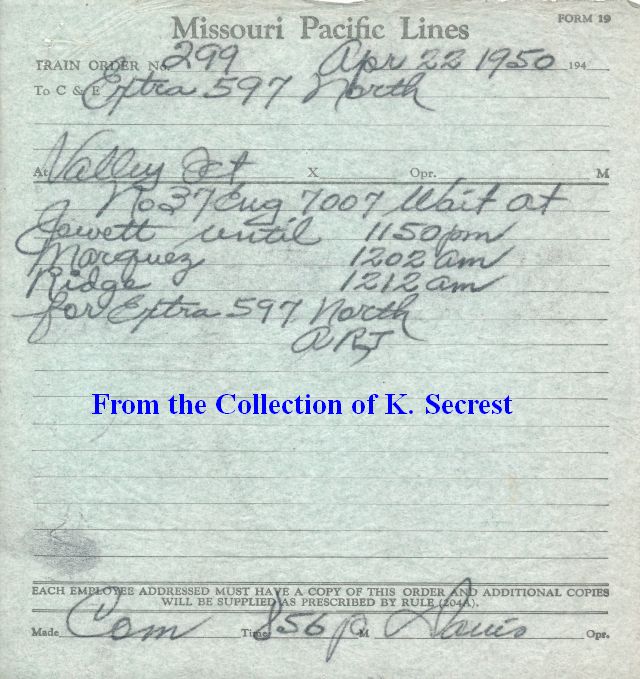 Missouri Pacific Lines
FORM 19
TRAIN ORDER No. 299 Apr 22 1950 194
To C & E Extra 597 North
At Valley Jct X Opr. M
No 37 Eng 7007 Wait at
Jewett until 1150 pm
Marquez 1202 am
Ridge 1212 am
for Extra 597 North
ARJ
From the Collection of K. Secrest
EACH EMPLOYEE ADDRESSED MUST HAVE A COPY OF THIS ORDER AND ADDITIONAL COPIES
WILL BE SUPPLIED AS PRESCRIBED BY RULE (204A).
Made Com Time 856 p M Davis Opr.